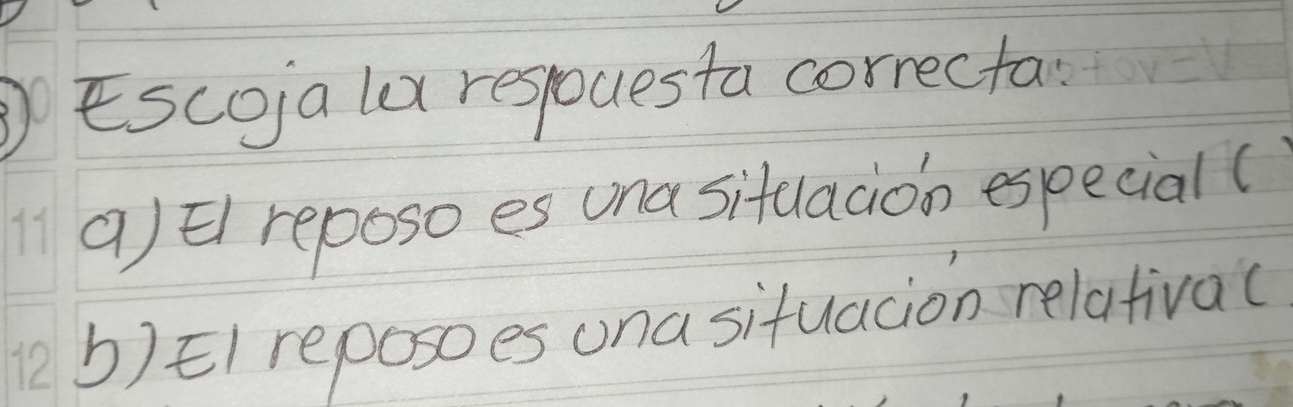 3) Escoja la respuesta correcta:
11 a) El reposo es una situación especial (
12 b) El reposo es una situación relativa (